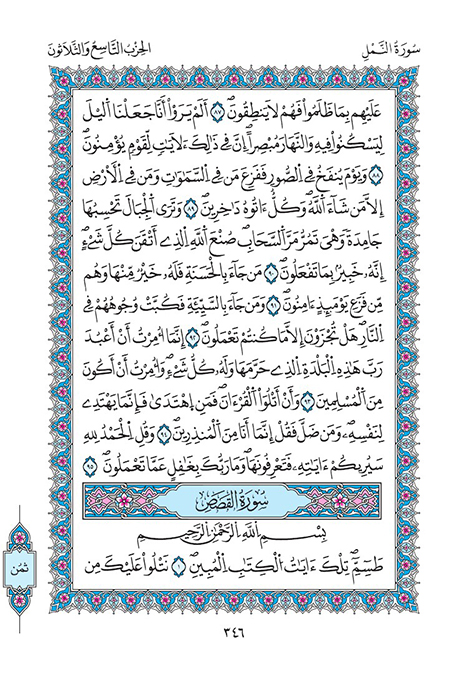 سُورَةُ النَّمْلِ
الحِزْبُ التَّاسِعُ وَالثَّلَاثُونَ
عَلَيْهِم بِمَا ظَلَمُواْ فَهُمْ لَا يَنطِقُونَۖ ٨٧ أَلَمْ يَرَوَاْ اَنَّا جَعَلْنَا اَ۬ليْلَ
لِيَسْكُنُواْ فِيهِ وَالنَّهَارَ مُبْصِراًۖ اِنَّ فِے ذَٰلِكَ لَأٓيَٰتٖ لِّقَوْمٖ يُؤْمِنُونَۖ
٨٨ وَيَوْمَ يُنفَخُ فِے اِ۬لصُّورِ فَفَزِعَ مَن فِے اِ۬لسَّمَٰوَٰتِ وَمَن فِے اِ۬لَارْضِ
إِلَّا مَن شَآءَ اَ۬للَّهُۖ وَكُلٌّ ءَاتُوهُ دَٰخِرِينَۖ ٨٩ وَتَرَي اَ۬لْجِبَالَ تَحْسِبُهَا
جَامِدَةٗ وَهِيَ تَمُرُّ مَرَّ اَ۬لسَّحَابِۖ صُنْعَ اَ۬للَّهِ اِ۬لذِےٓ أَتْقَنَ كُلَّ شَےْءٍۖ
اِنَّهُۥ خَبِيرُۢ بِمَا تَفْعَلُونَۖ ٩٠ مَن جَآءَ بِالْحَسَنَةِ فَلَهُۥ خَيْرٞ مِّنْهَا وَهُم
مِّن فَزَعِ يَوْمَئِذٍ اٰمِنُونَۖ ٩١ وَمَن جَآءَ بِالسَّيِّئَةِ فَكُبَّتْ وُجُوهُهُمْ فِے
اِ۬لنَّارِۖ هَلْ تُجْزَوْنَ إِلَّا مَا كُنتُمْ تَعْمَلُونَۖ ٩٢ إِنَّمَآ أُمِرْتُ أَنَ اَعْبُدَ
رَبَّ هَٰذِهِ اِ۬لْبَلْدَةِ اِ۬لذِے حَرَّمَهَا وَلَهُۥ كُلُّ شَےْءٖۖ وَأُمِرْتُ أَنَ اَكُونَ
مِنَ اَ۬لْمُسْلِمِينَ ٩٣ وَأَنَ اَتْلُوَاْ اَ۬لْقُرْءَانَۖ فَمَنِ اِ۪هْتَد۪ىٰ فَإِنَّمَا يَهْتَدِے
لِنَفْسِهِۦۖ وَمَن ضَلَّ فَقُلِ اِنَّمَآ أَنَا مِنَ اَ۬لْمُنذِرِينَۖ ٩٤ وَقُلِ اِ۬لْحَمْدُ لِلهِ
سَيُرِيكُمُۥٓ ءَايَٰتِهِۦ فَتَعْرِفُونَهَاۖ وَمَا رَبُّكَ بِغَٰفِلٍ عَمَّا تَعْمَلُونَۖ ٩٥
سُورَةُ القَصَصِ
بِسْمِ اِ۬للَّهِ اِ۬لرَّحْمَٰنِ اِ۬لرَّحِيمِ
طَسِٓمِّٓۖ تِلْكَ ءَايَٰتُ اُ۬لْكِتَٰبِ اِ۬لْمُبِينِۖ ١ نَتْلُواْ عَلَيْكَ مِن
ثُمُن
٣٤٦